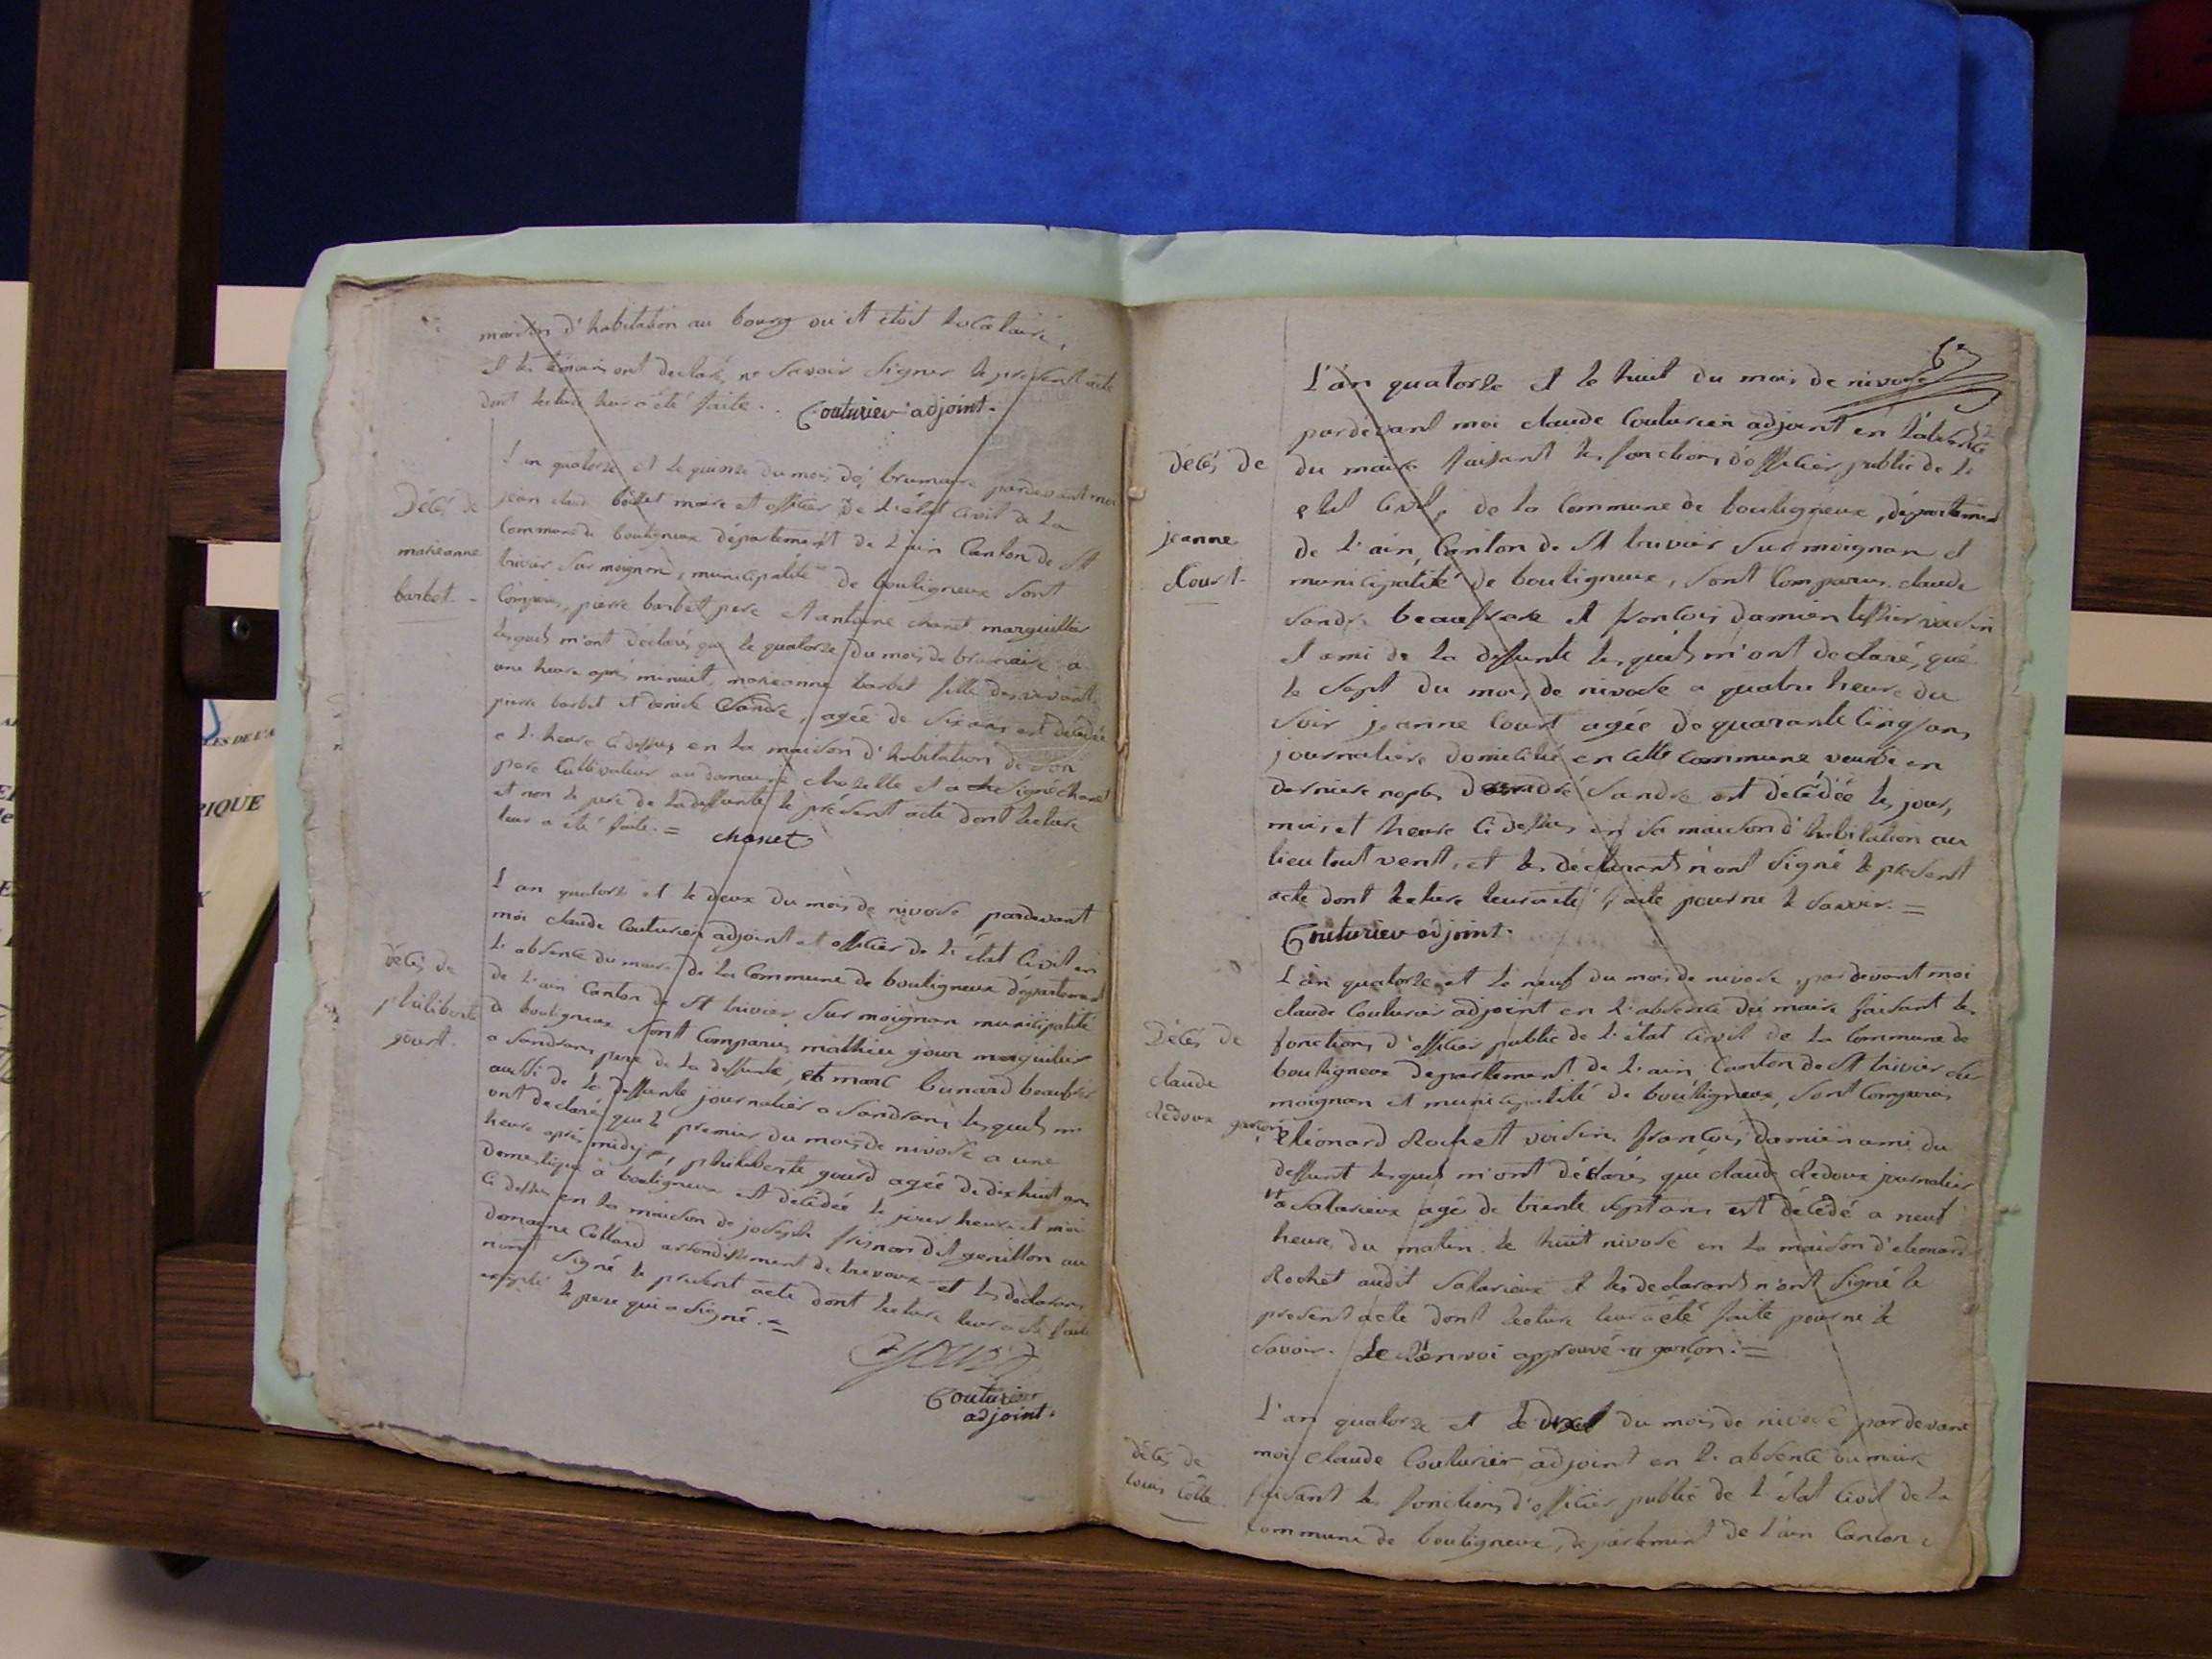 maison d'habitation au bourg ou il étoit locataire,
et les témoins ont declarés ne savoir signer le present acte
dont lecture leur a été faite.. Couturier adjoint.
Décés de
marianne
barbet. -
L'an quatorze et le quinze du mois de brumaire pardevant moi
jean claude maire et officier de l'état civil de la
Commune de bouligneux département de l'ain Canton de St
trivier sur moignand, municipalité de bouligneux sont
Comparus, pierre barbet pere et antoine chanet marguillier
lesquels m'ont déclarés que le quatorze du mois de brumaire a
une heure après minuit, marianne barbet fille des vivants
pierre barbet et denise Sandre, agée de six ans est décédée
a l'heure ci dessus en la maison d'habitation de son
pere Cultivateur au domaine chazelle et a signé chanet
et non le pere de la deffunte le présent acte dont lecture
leur a été faite. = chanet
décés de
philiberte
gourt.
L'an quatorze et le deux du mois de nivose pardevant
moi claude Couturier adjoint et officier de l'état Civil en
l'absence du maire de la Commune de bouligneux département
de l'ain Canton de St trivier sur moignan municipalité
de bouligneux sont Comparus mathieu gour marguilier
a Sandrans pere de la deffunte, et marc bunard beaufrer
aussi de la deffunte journalier a Sandrans lesquels m
ont declaré que le premier du mois de nivose a une
heure après midy, philiberte gourd agée de dix huit ans
domestique à bouligneux est décédée le jour heure et moi
ci dessus en la maison de joseph dit genillon au
domaine Collard arrondissement de trevoux et les déclarans
n'ont signé le present acte dont lecture leur a été faite
excepté le pere qui a signé. =
Couturier
adjoint.
6
décés de
jeanne
Court.
L'an quatorze et le huit du mois de nivose
pardevant moi claude Couturier adjoint en l'absence
du maire faisant les fonctions d'officier public de l'
etat Civil, de la Commune de bouligneux, département
de l'ain, Canton de St trivier sur moignan et
municipalité de bouligneux, sont Comparus claude
Sandre beaufrere et francois damien voisin
et ami de la deffunte lesquels m'ont declaré, que
le sept du mois de nivose a quatre heure du
soir jeanne Court agée de quarante cinq ans
journaliere domicilié en cette commune veuve en
derniere nopces d'andré Sandre est décédée les jour,
mois et heure ci dessus en sa maison d'habitation au
lieu tout vent, et les déclarants n'ont signé le present
acte dont lecture leur a été faite pour ne le savoir. =
Couturier adjoint.
Décés de
claude
dedoux garçon
L'an quatorze et le neuf du mois de nivose, pardevant moi
claude Couturier adjoint en l'absence du maire faisant les
fonctions d'officier public de l'état Civil de la Commune de
bouligneux departement de l'ain Canton de St trivier sur
moignan et municipalité de bouligneux, sont Comparus
eléonard Rochet voisin, françois damien ami du
deffunt lesquels m'ont déclarés que claude dedoux journalier
a Salarieux agé de trente sept ans est décédé a neuf
heure du matin le huit nivose en la maison d'eleonard
Rochet audit Salarieux et les declarants n'ont signé le
present acte dont lecture leur a été faite pour ne le
savoir. Le Renvoi approuvé " garçon. =
décés de
louis Colle
L'an quatorze et le du mois de nivose pardevant
moi claude Couturier adjoint en l'absence du maire
faisant les fonctions d'officier public de l'état Civil de la
commune de bouligneux, departement de l'ain Canton
RIQUE